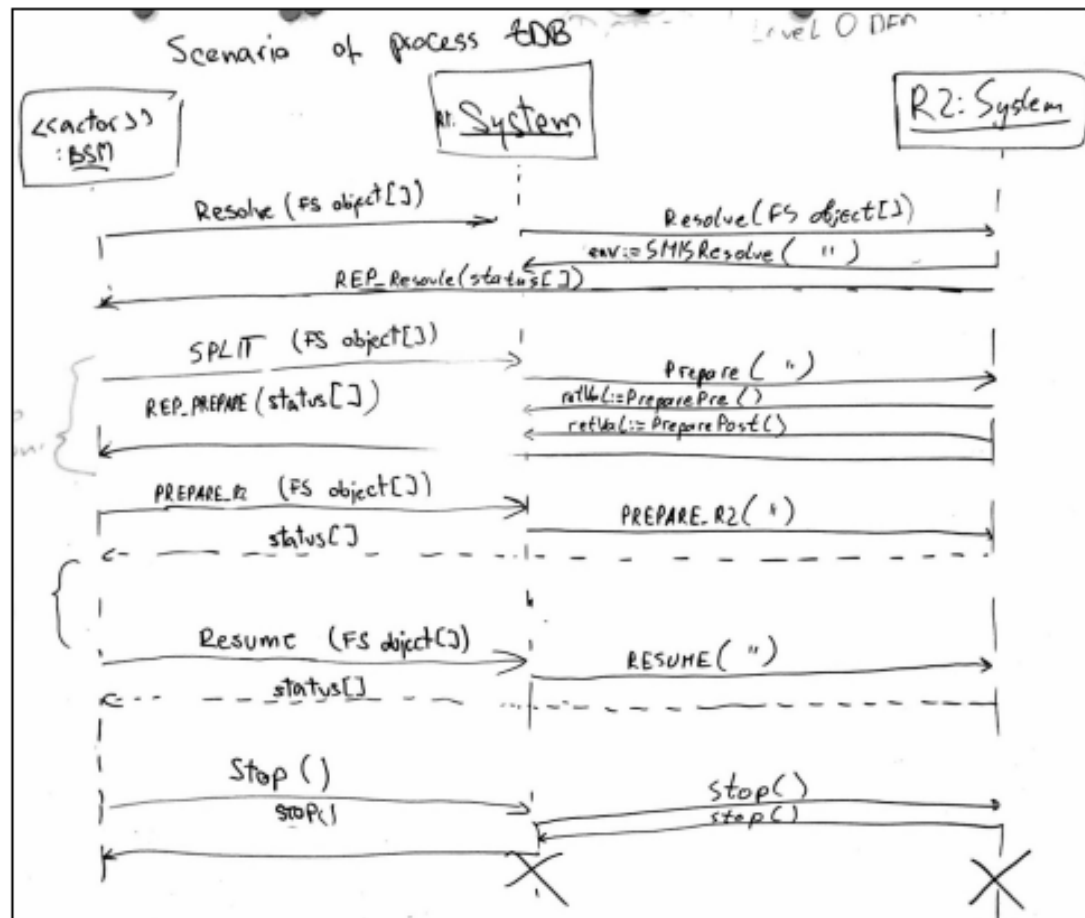 Scenario of process tDB
Level 0
<<actor>>
: BSM
R1: System
R2: System
Resolve (FS object[])
Resolve (FS object[])
env:= SMISResolve ( " )
REP_Resovle (status[])
SPLIT (FS object[])
Prepare ( " )
REP_PREPARE (status[])
retVal:= PreparePre ()
retVal:= PreparePost ()
PREPARE_R2 (FS object[])
PREPARE_R2 ( " )
status[]
Resume (FS object[])
RESUME ( " )
status[]
Stop ()
stop()
stop()
stop()